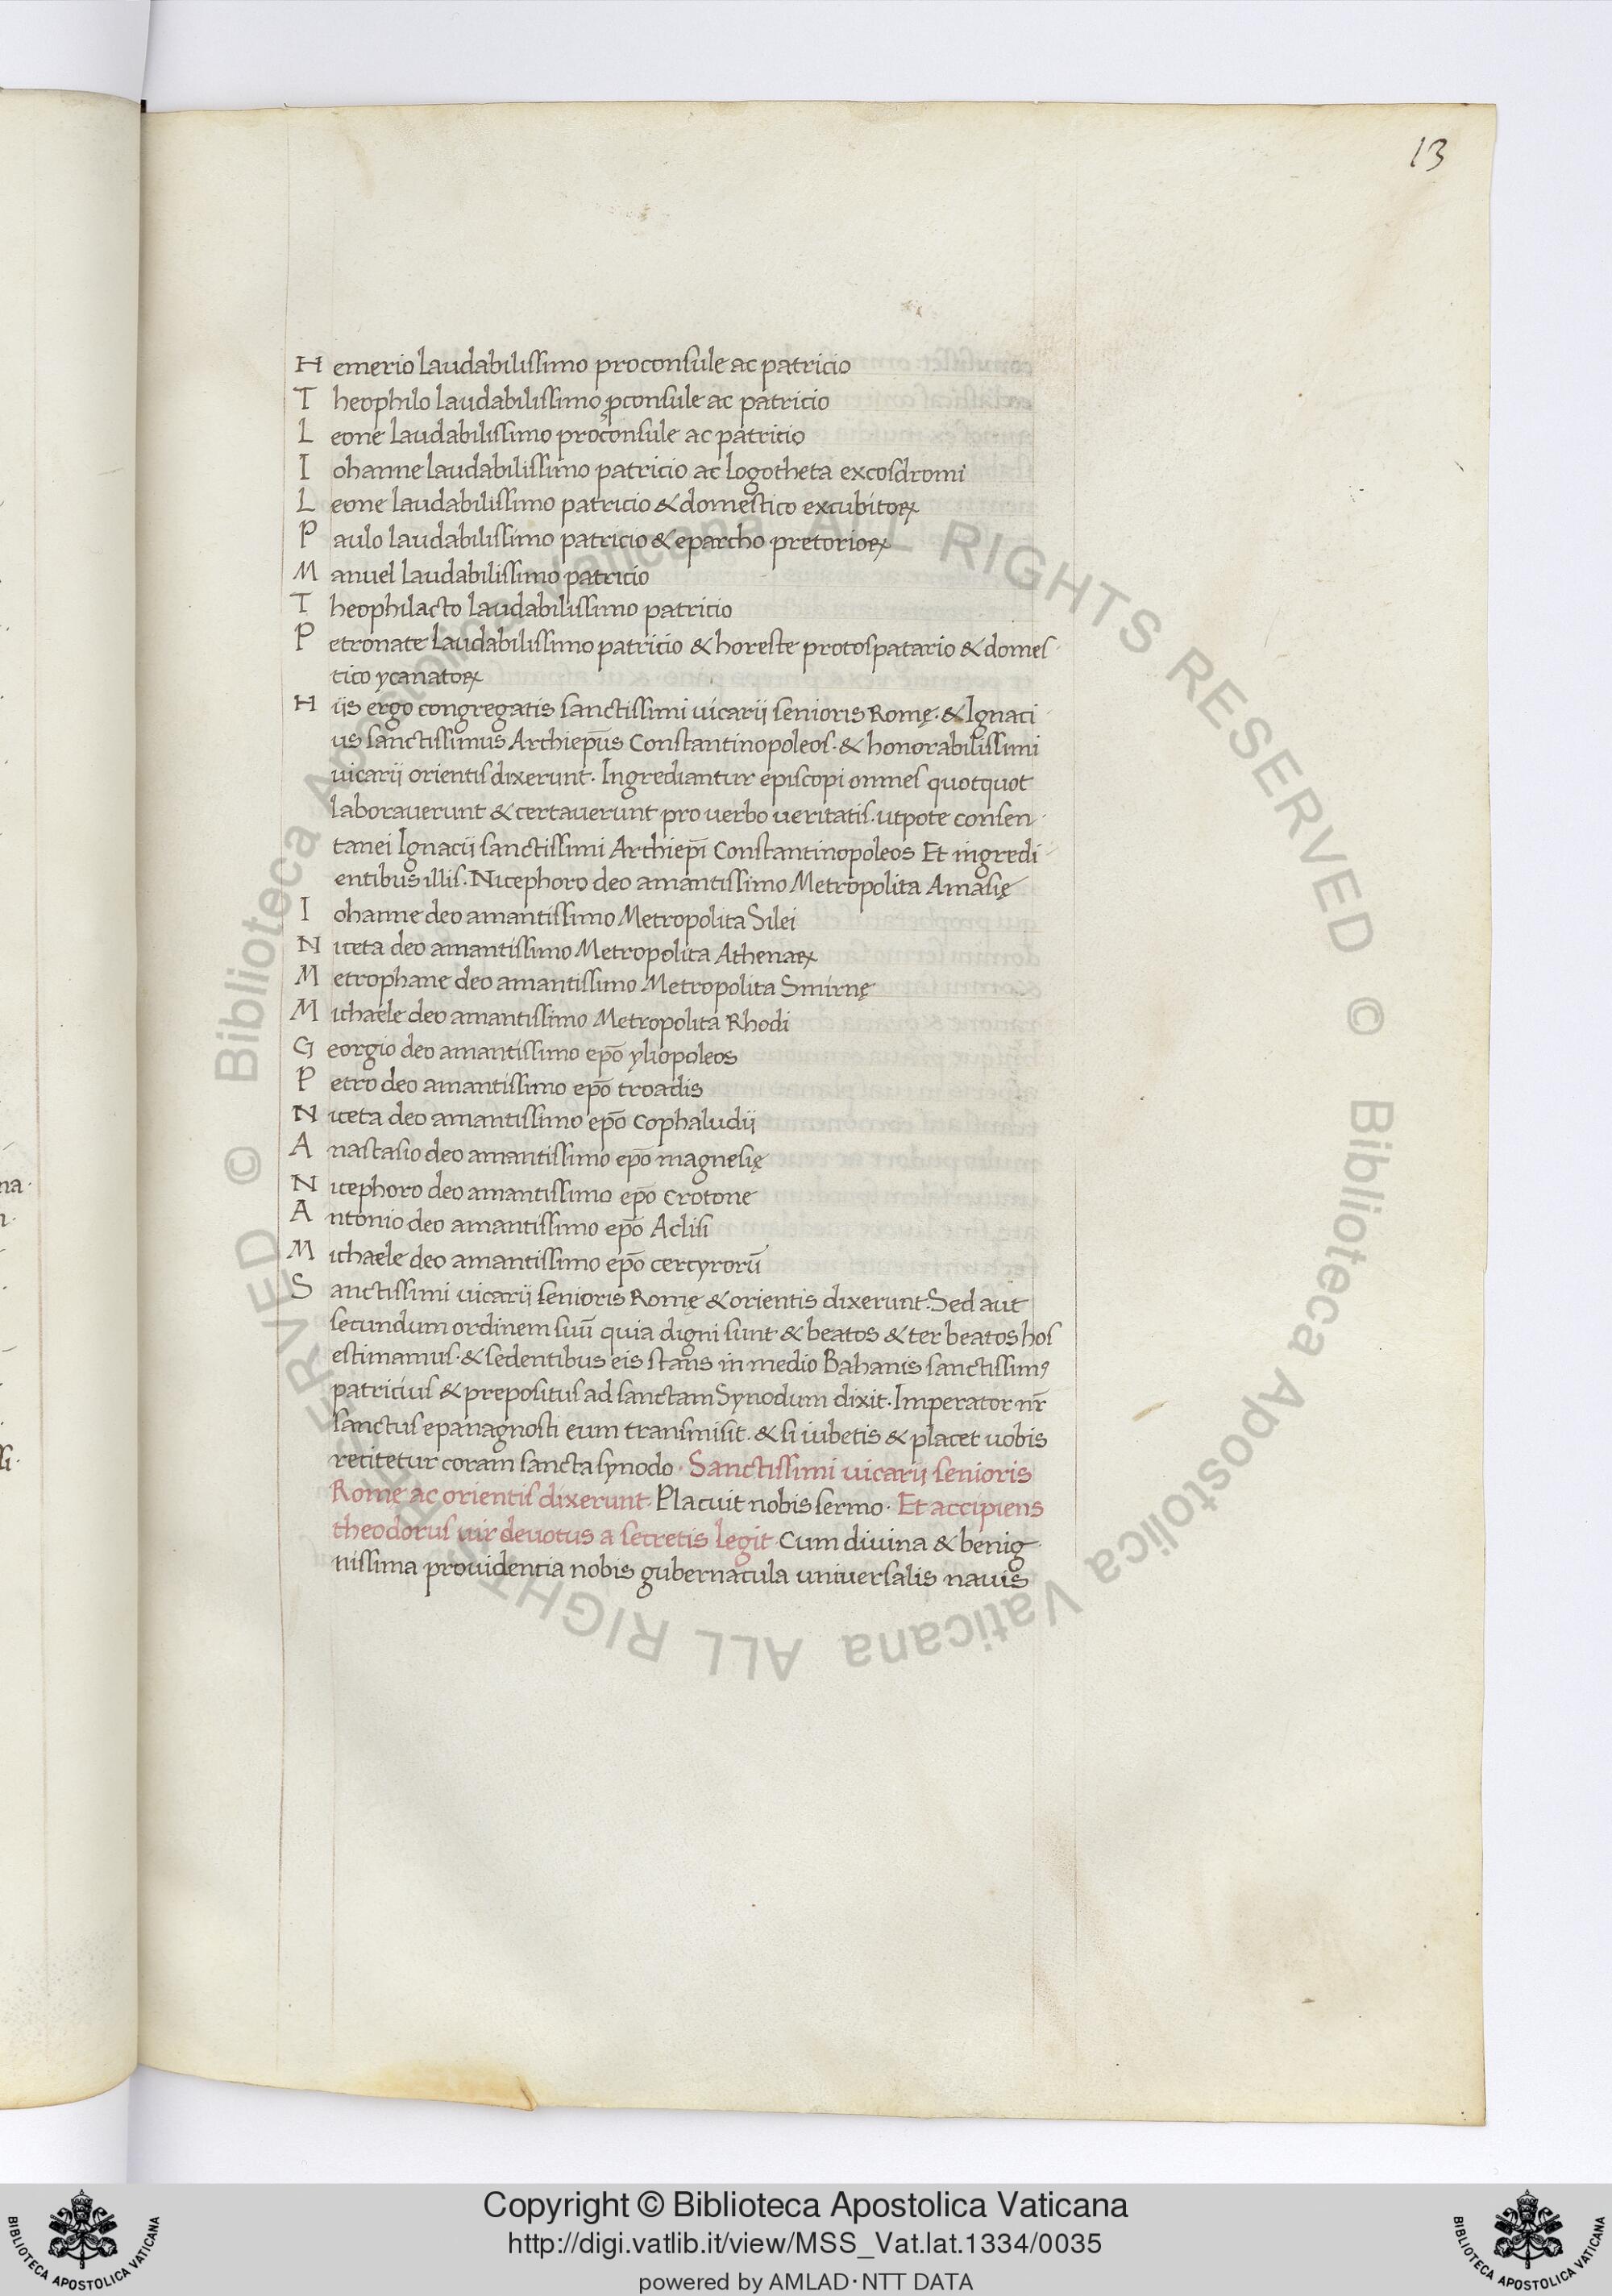 13
Hemerio laudabilissimo proconsule ac patricio
Theophilo laudabilissimo ꝓconsule ac patricio
Leone laudabilissimo proconsule ac patricio
Iohanne laudabilissimo patricio ac logotheta excosdromi
Leone laudabilissimo patricio & domestico excubitoꝝ
Paulo laudabilissimo patricio & eparcho pretorioꝝ
Manuel laudabilissimo patricio
Theophilacto laudabilissimo patricio
Petronate laudabilissimo patricio & horeste protospatario & domes
tico ycanatoꝝ
Hiis ergo congregatis sanctissimi uicarii senioris Romę · & Ignaci
us sanctissimus Archiep̄us Constantinopoleos · & honorabilissimi
uicarii orientis dixerunt · Ingrediantur episcopi omnes quotquot
laborauerunt & certauerunt pro uerbo ueritatis · utpote consen
tanei Ignacii sanctissimi Archiep̄i Constantinopoleos Et ingredi
entibus illis · Nicephoro deo amantissimo Metropolita Amasię
Iohanne deo amantissimo Metropolita Silei
Niceta deo amantissimo Metropolita Athenaꝝ
Metrophane deo amantissimo Metropolita Smirnę
Michaele deo amantissimo Metropolita Rhodi
Georgio deo amantissimo ep̄o yliopoleos
Petro deo amantissimo ep̄o troadis
Niceta deo amantissimo ep̄o cophaludii
Anastasio deo amantissimo ep̄o magnesię
Nicephoro deo amantissimo ep̄o crotone
Antonio deo amantissimo ep̄o Aclisi
Michaele deo amantissimo ep̄o cercyrorū
Sanctissimi uicarii senioris Romę & orientis dixerunt · Sed aut
secundum ordinem suū quia digni sunt & beatos & ter beatos hos
estimamus · & sedentibus eis stans in medio Bahanis sanctissimꝰ
patricius & prepositus ad sanctam Synodum dixit · Imperator nr̄
sanctus epanagnosti eum transmisit · & si iubetis & placet uobis
recitetur coram sancta synodo · Sanctissimi uicarii senioris
Rome ac orientis dixerunt · Placuit nobis sermo · Et accipiens
theodorus uir deuotus a secretis legit Cum diuina & benig
nissima prouidentia nobis gubernacula uniuersalis nauis
© Biblioteca Apostolica Vaticana ALL RIGHTS RESERVED
© Biblioteca Apostolica Vaticana ALL RIGHTS RESERVED
Copyright © Biblioteca Apostolica Vaticana
http://digi.vatlib.it/view/MSS_Vat.lat.1334/0035
powered by AMLAD·NTT DATA
BIBLIOTECA APOSTOLICA VATICANA
BIBLIOTECA APOSTOLICA VATICANA